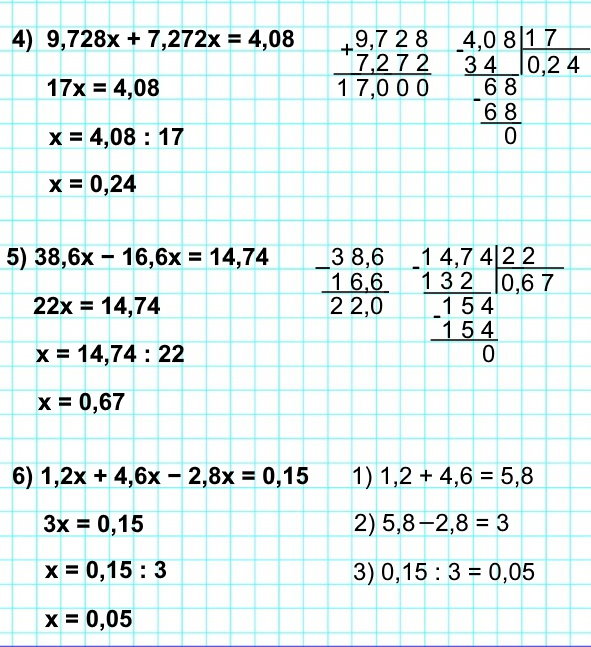 4) 9,728x + 7,272x = 4,08
17x = 4,08
x = 4,08 : 17
x = 0,24
+9,728
7,272
17,000
-4,08|17
34 |0,24
-68
68
0
5) 38,6x − 16,6x = 14,74
22x = 14,74
x = 14,74 : 22
x = 0,67
−38,6
16,6
22,0
-14,74|22
132 |0,67
-154
154
0
6) 1,2x + 4,6x − 2,8x = 0,15
3x = 0,15
x = 0,15 : 3
x = 0,05
1) 1,2 + 4,6 = 5,8
2) 5,8−2,8 = 3
3) 0,15 : 3 = 0,05